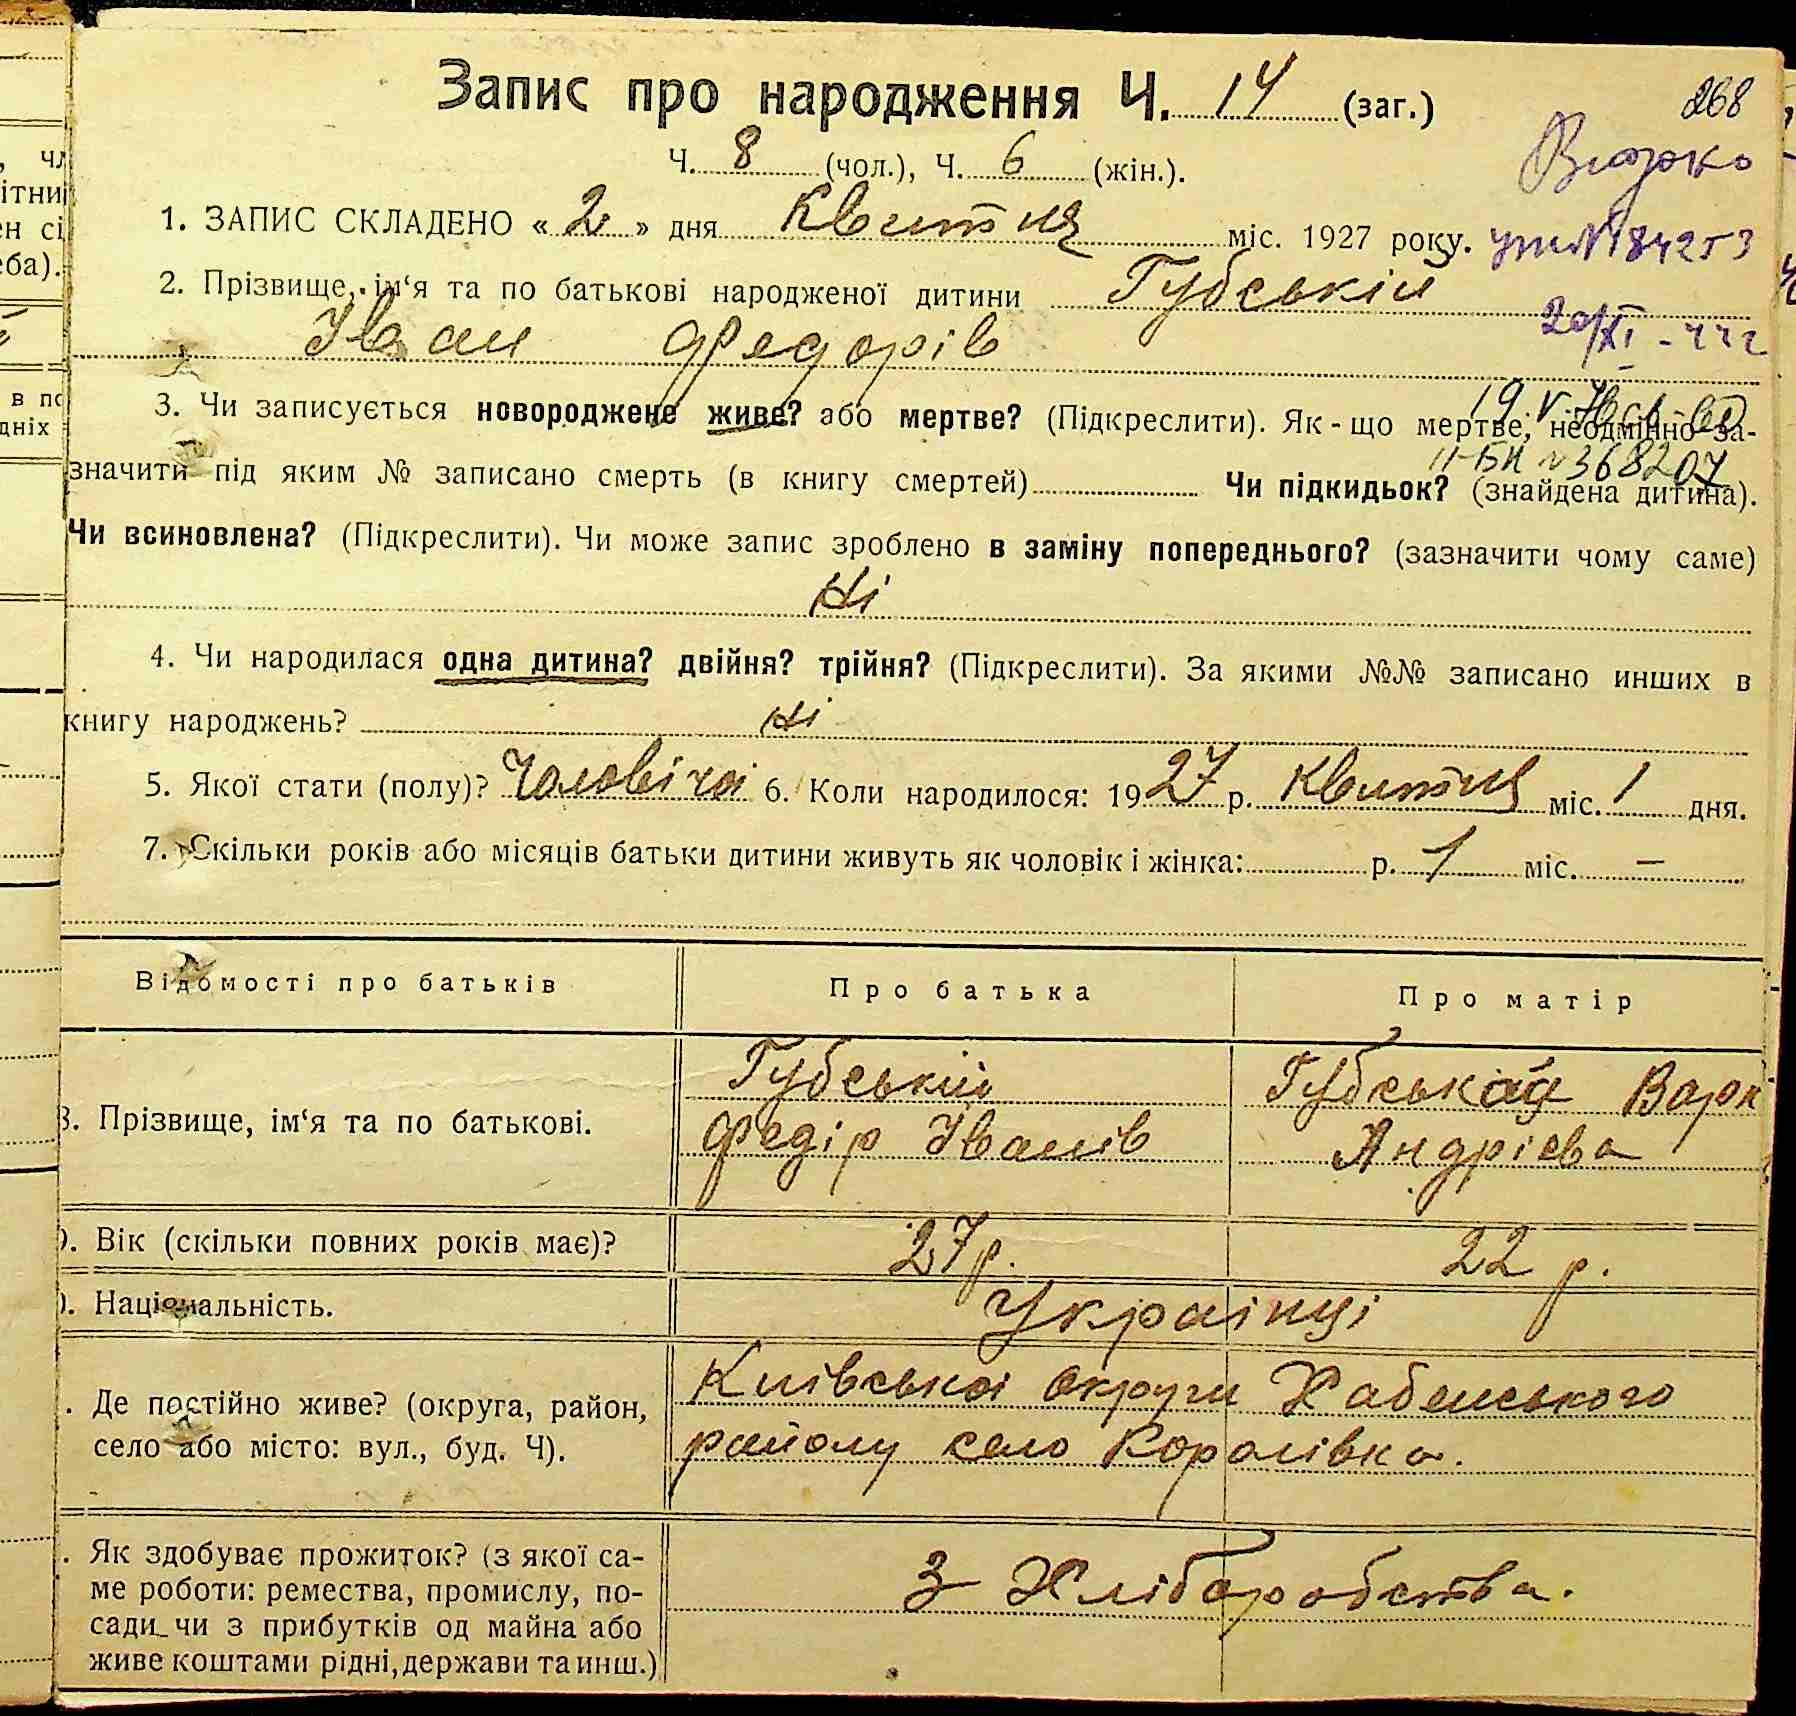 Запис про народження Ч. 14 (заг.)
268
Ч. 8 (чол.), Ч. 6 (жін.).
1. ЗАПИС СКЛАДЕНО « 2 » дня Квитня міс. 1927 року.
2. Прізвище, ім‘я та по батькові народженої дитини Губській
Іван Федорів
20/XI - 44г
3. Чи записується новороджене живе? або мертве? (Підкреслити). Як - що мертве, неодмінно за-
значити під яким № записано смерть (в книгу смертей) Чи підкидьок? (знайдена дитина).
II-БН №368207
Чи всиновлена? (Підкреслити). Чи може запис зроблено в заміну попереднього? (зазначити чому саме)
Ні
4. Чи народилася одна дитина? двійня? трійня? (Підкреслити). За якими №№ записано инших в
книгу народжень? Ні
5. Якої стати (полу)? Чоловічоі 6. Коли народилося: 1927 р. Квитня міс. 1 дня.
7. Скільки років або місяців батьки дитини живуть як чоловік і жінка: р. 1 міс. —
Відомості про батьків Про батька Про матір
8. Прізвище, ім‘я та по батькові.
Губській
Федір Іванів
Губськая Варк
Андрієва
. Вік (скільки повних років має)? 27 р. 22 р.
. Національність. Украінці
. Де постійно живе? (округа, район,
село або місто: вул., буд. Ч).
Киівськоі округи Хабенського
району село Королівка.
. Як здобуває прожиток? (з якої са-
ме роботи: ремества, промислу, по-
сади чи з прибутків од майна або
живе коштами рідні, держави та инш.)
З Хліборобства.